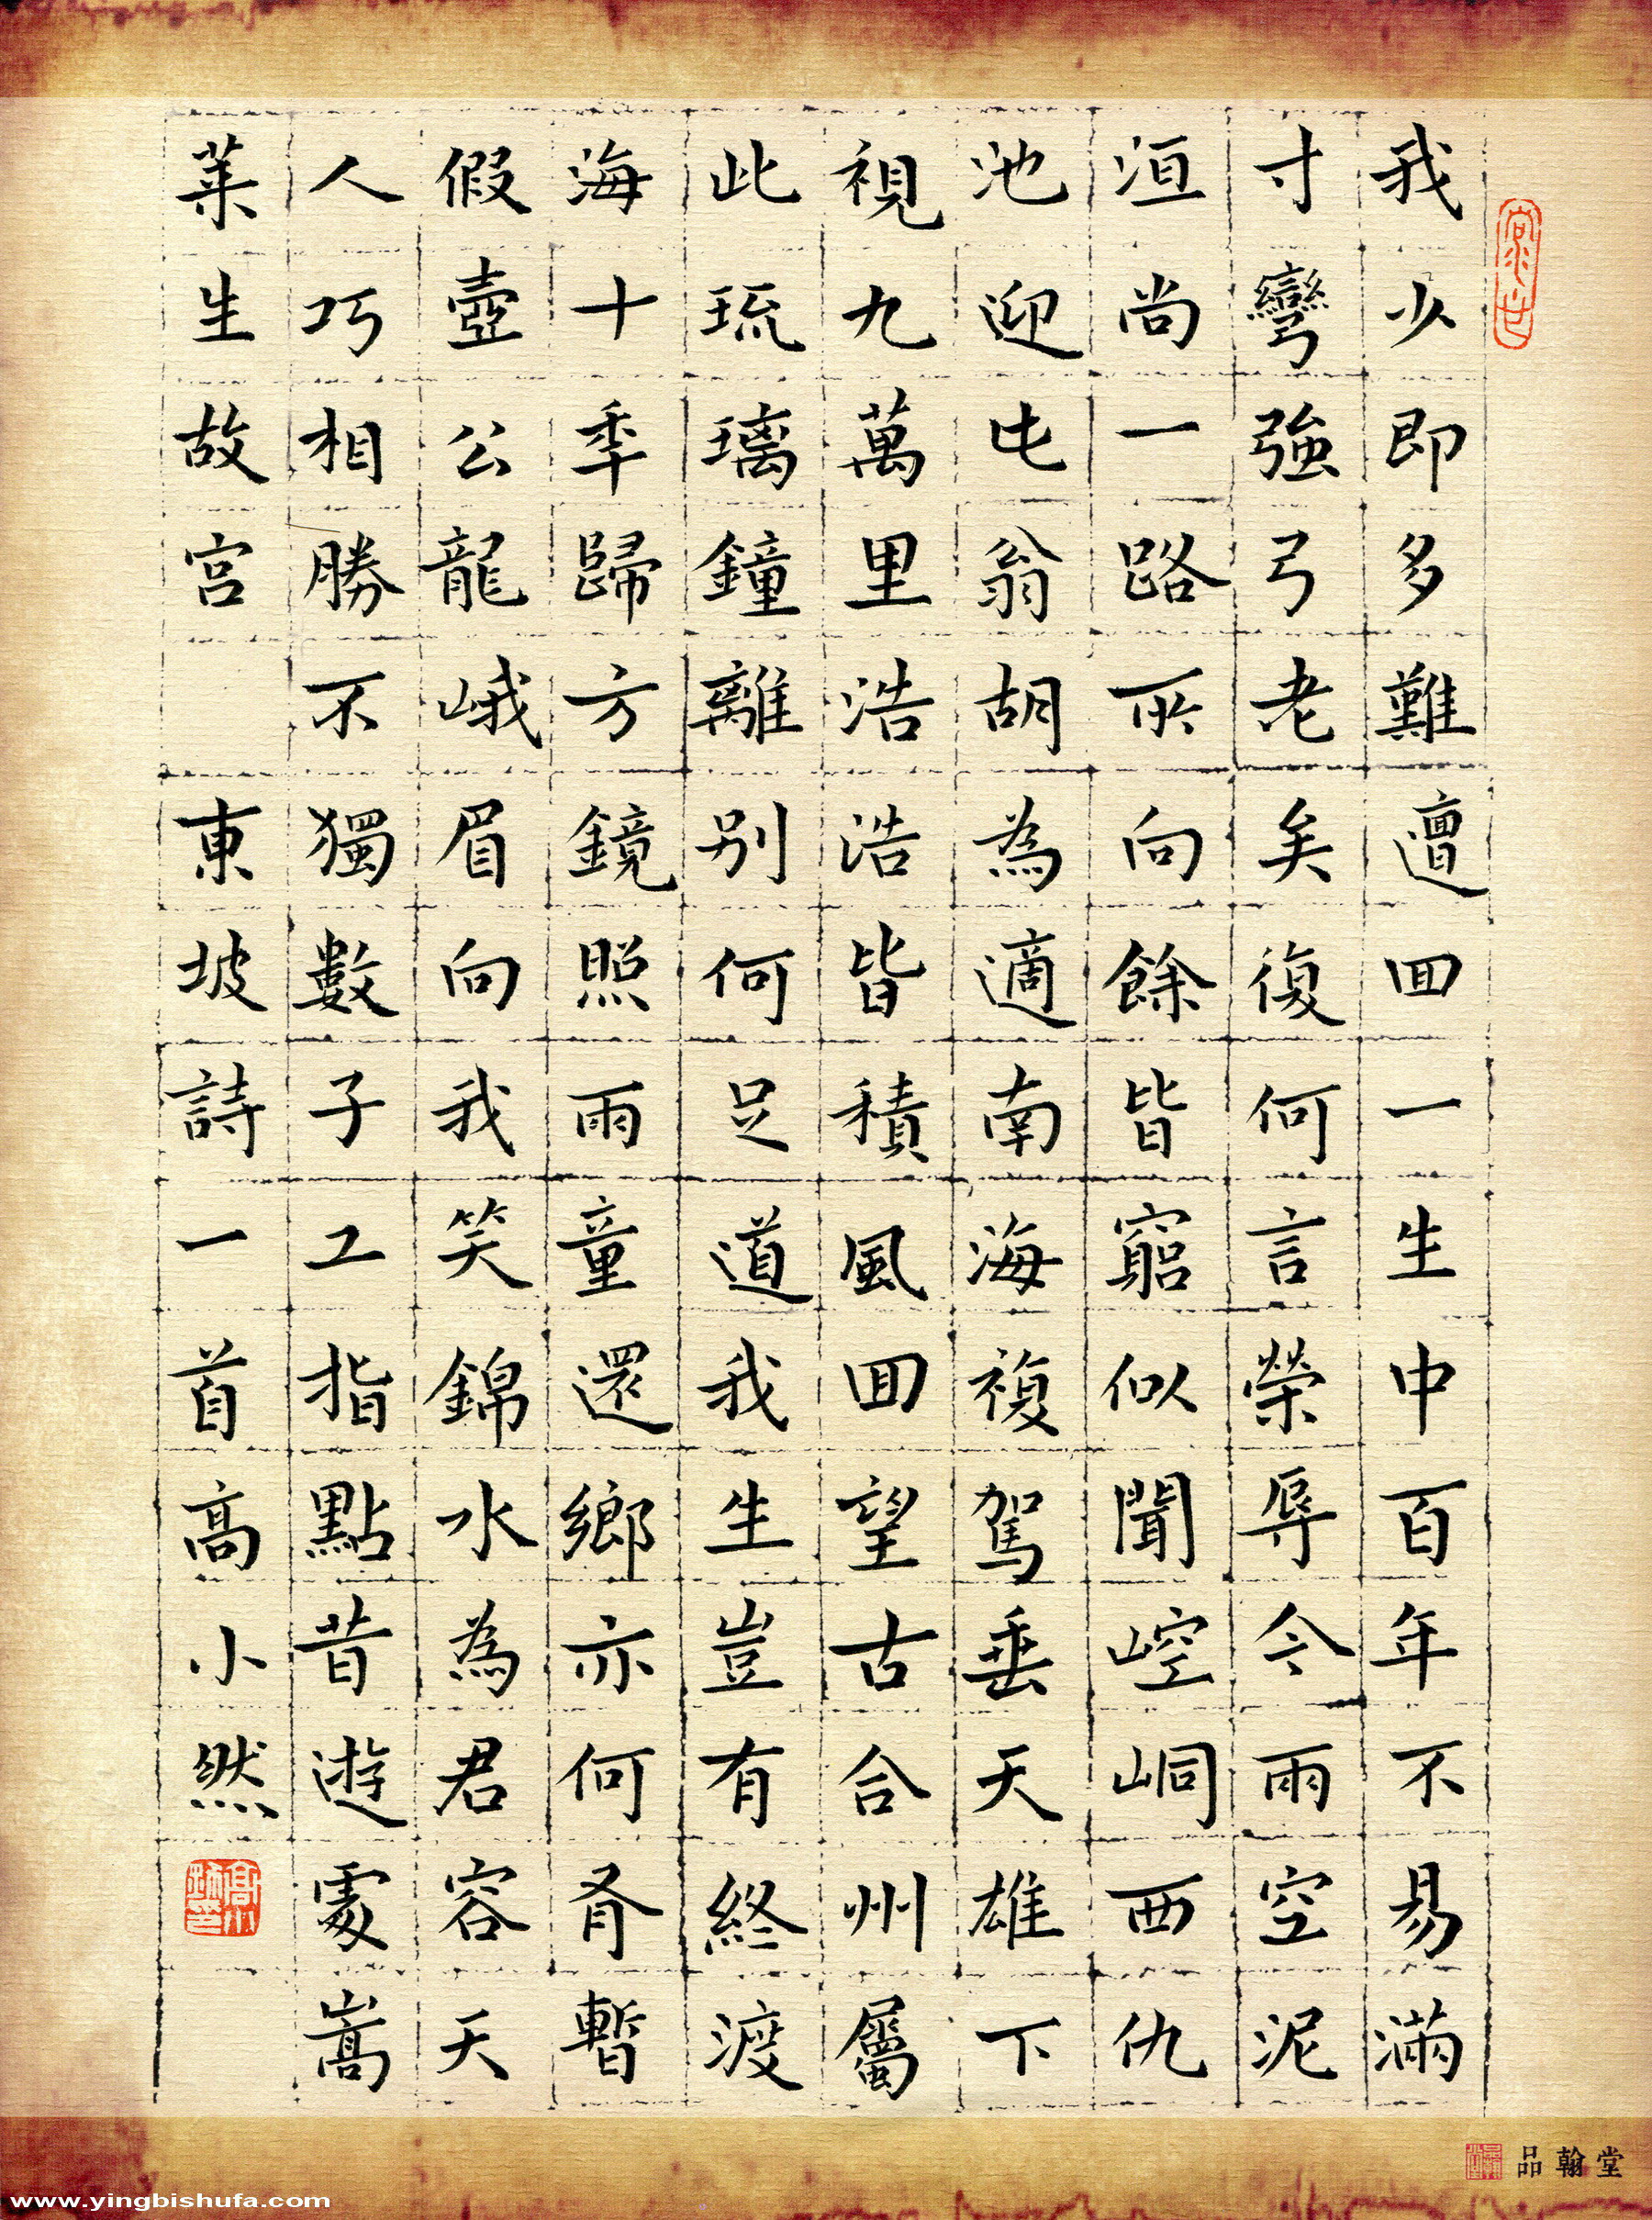 我少即多難邅回一生中百年不易滿
寸彎強弓老矣復何言榮辱今兩空泥
洹尚一路所向餘皆窮似聞崆峒西仇
池迎此翁胡為適南海複駕垂天雄下
視九萬里浩浩皆積風回望古合州屬
此琉璃鐘離別何足道我生豈有終渡
海十年歸方鏡照兩童還鄉亦何有暫
假壺公龍峨眉向我笑錦水為君容天
人巧相勝不獨數子工指點昔遊處蒿
萊生故宮 東坡詩一首高小然
品翰堂
www.yingbishufa.com